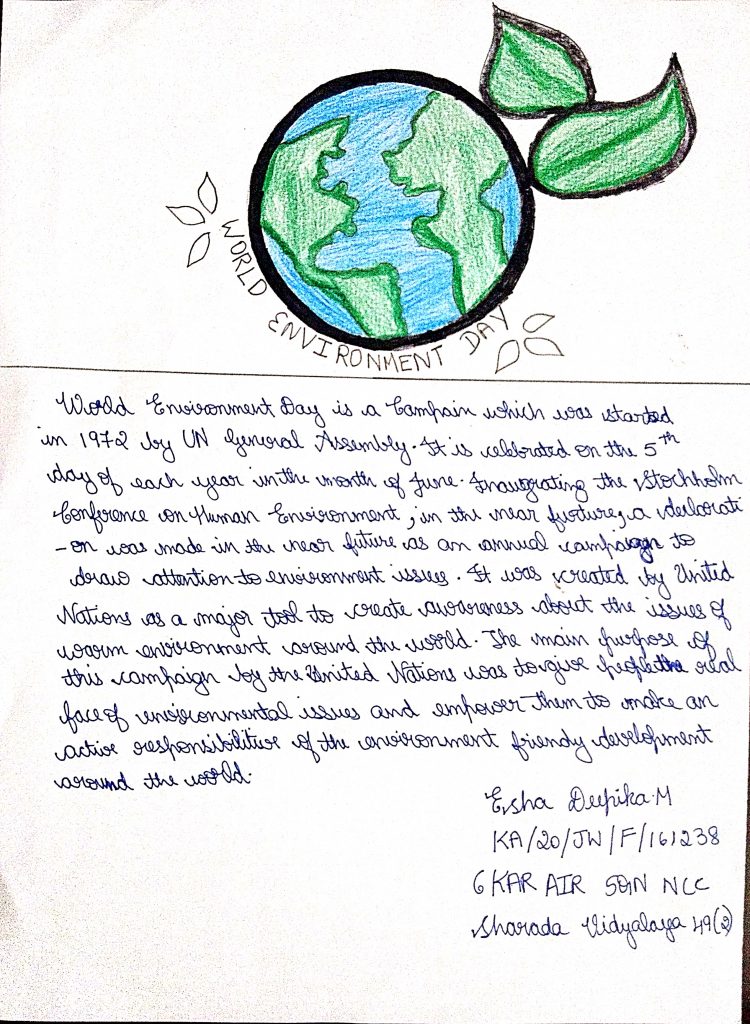 WORLD ENVIRONMENT DAY
World Environment Day is a Campain which was started
in 1972 by UN General Assembly. It is celebrated on the 5th
day of each year in the month of June. Inaugrating the Stockholm
Conference on Human Environment, in the near furture, a declarati
-on was made in the near future as an annual campaign to
draw attention to environment issues. It was created by United
Nations as a major tool to create awareness about the issues of
warm environment around the world. The main purpose of
this campaign by the United Nations was to give people the real
face of environmental issues and empower them to make an
active responsibilities of the environment friendly development
around the world.
Esha Deepika.M
KA/20/JW/F/161238
6 KAR AIR SQN NCC
Sharada Vidyalaya 49(2)